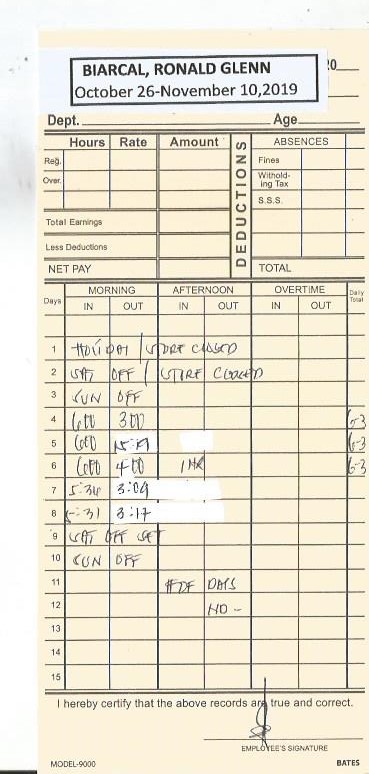 20
BIARCAL, RONALD GLENN
October 26-November 10,2019
Dept. Age
Hours Rate Amount DEDUCTIONS ABSENCES
Reg. Fines
Over. Withold-
ing Tax
S.S.S.
Total Earnings
Less Deductions
NET PAY TOTAL
Days MORNING AFTERNOON OVERTIME Daily Total
IN OUT IN OUT IN OUT
1 HOLIDAY / STORE CLOSED
2 SAT OFF / STORE CLOSED
3 SUN OFF
4 600 300 6-3
5 600 6-3
6 600 400 1 HR 6-3
7 5:36 3:09
8 5:31 3:17
9 SAT OFF
10 SUN OFF
11 # OF DAYS
12 NO -
13
14
15
I hereby certify that the above records are true and correct.
EMPLOYEE'S SIGNATURE
MODEL-9000 BATES